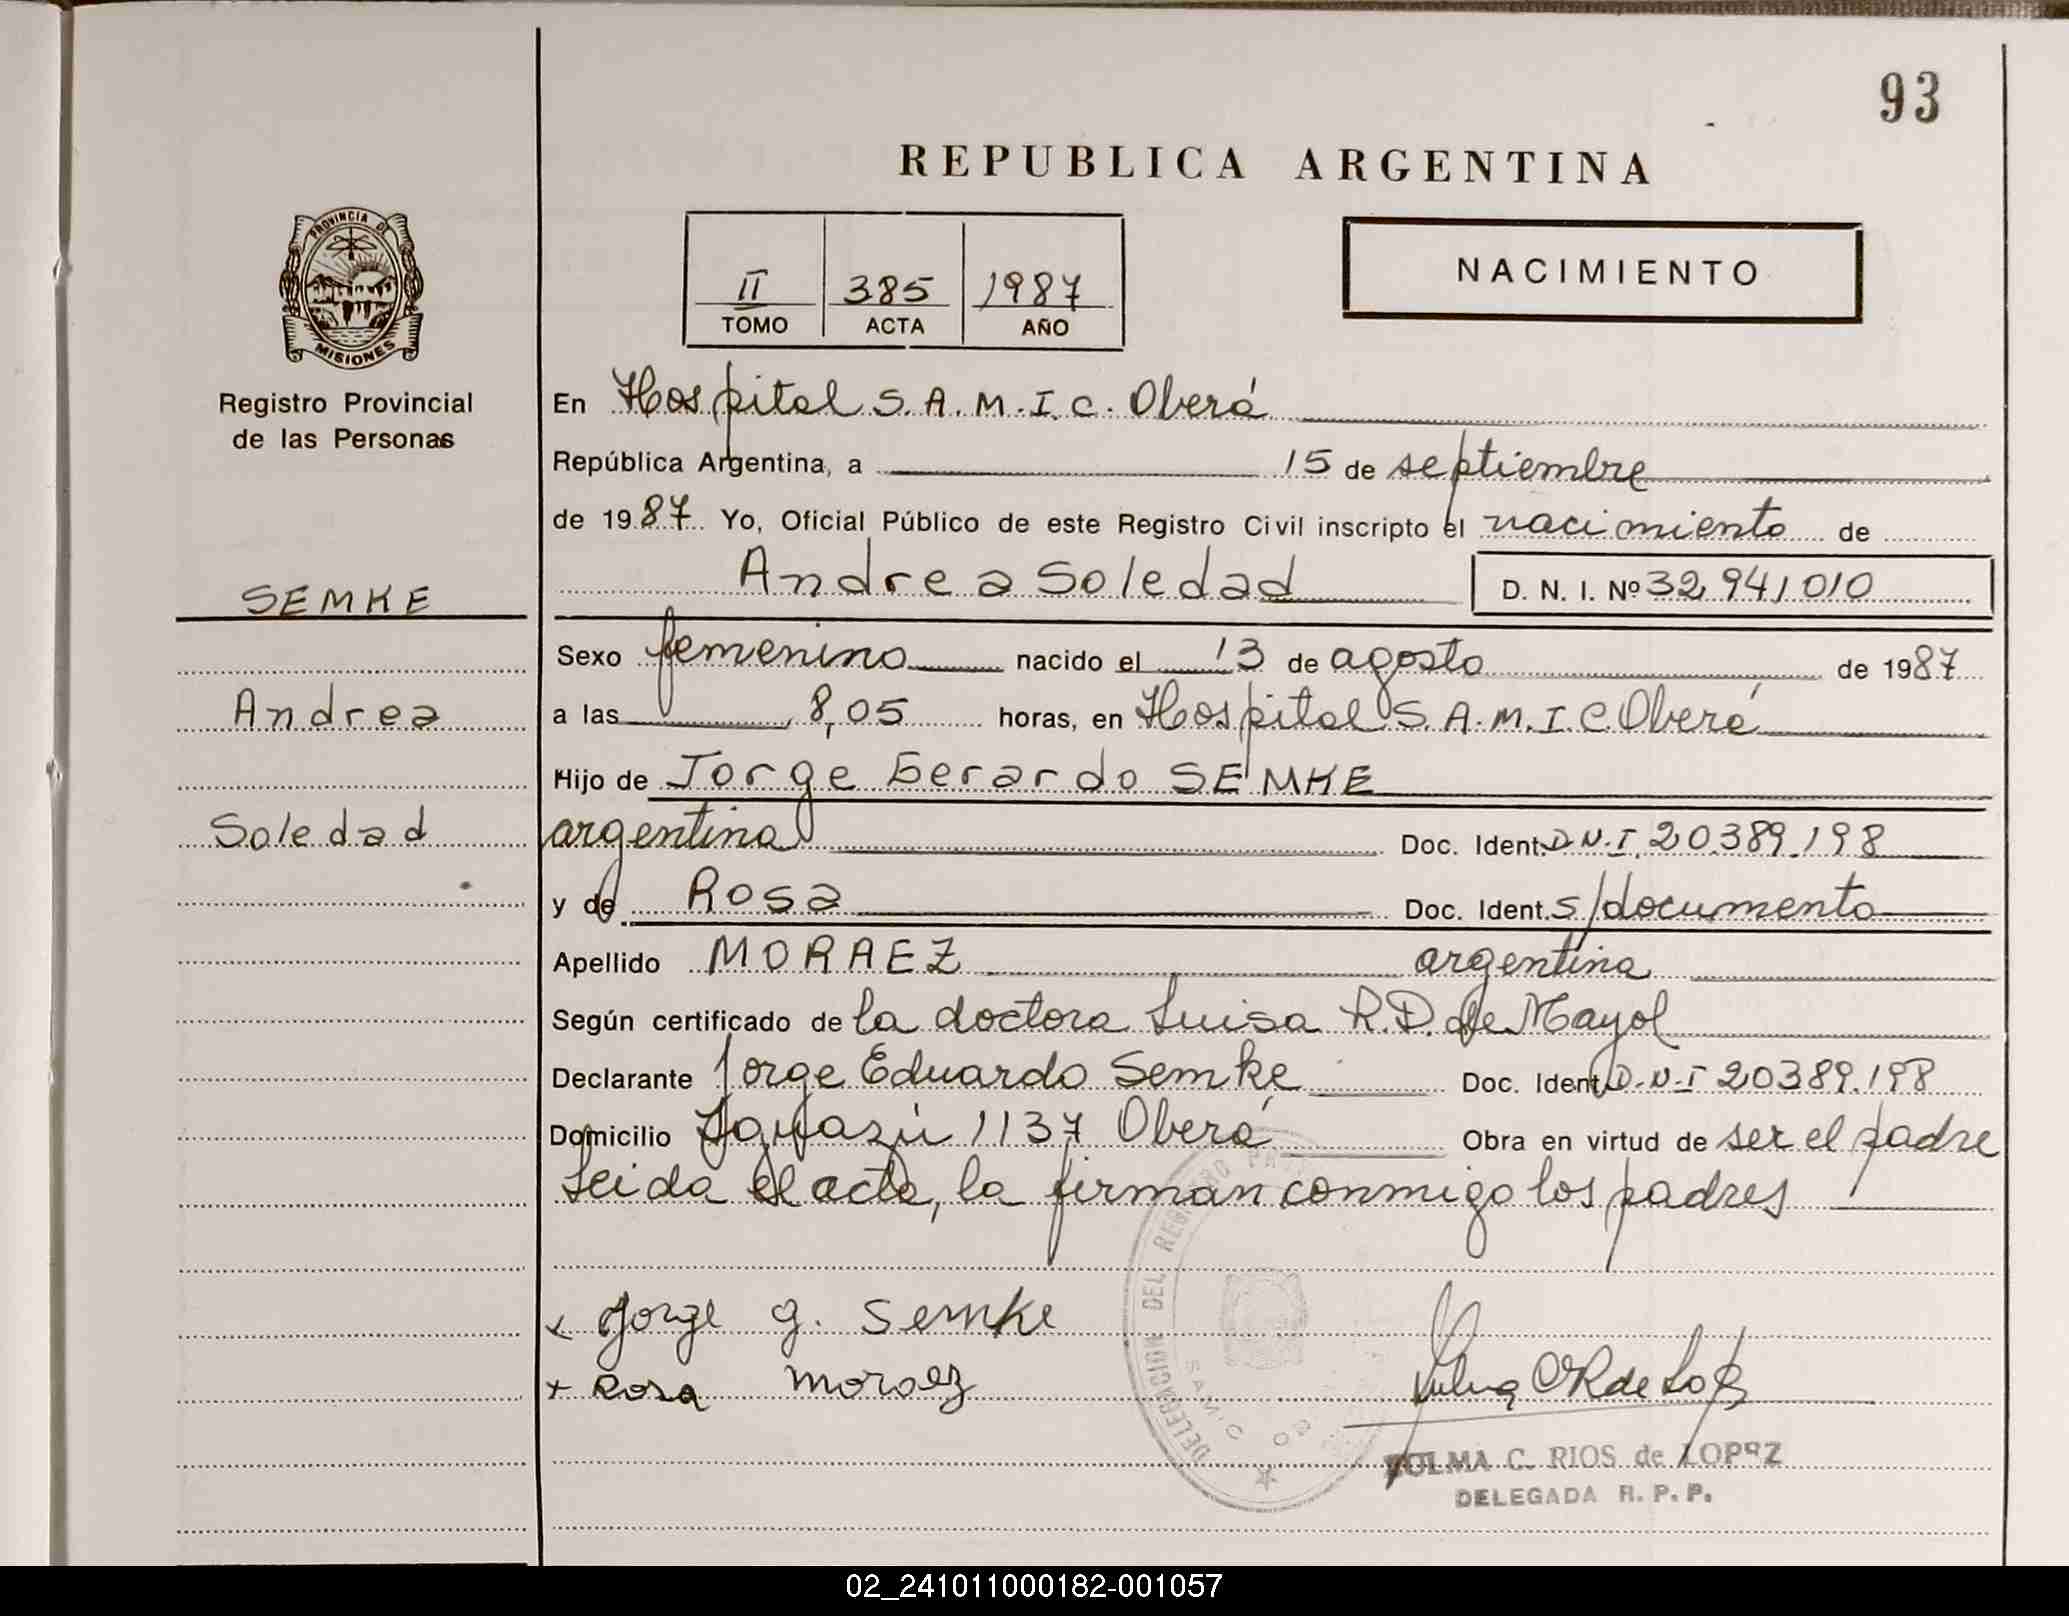 93
REPUBLICA ARGENTINA
PROVINCIA DE
MISIONES
Registro Provincial
de las Personas
II 385 1987
TOMO ACTA AÑO
NACIMIENTO
En Hospital S.A.M.I.C. Oberá
República Argentina, a 15 de septiembre
de 1987 Yo, Oficial Público de este Registro Civil inscripto el nacimiento de
Andrea Soledad D. N. I. Nº 32,941,010
SEMKE
Andrea
Soledad
Sexo femenino nacido el 13 de agosto de 1987
a las 8,05 horas, en Hospital S.A.M.I.C. Oberá
Hijo de Jorge Gerardo SEMKE
argentina Doc. Ident. D.N.I. 20.389.198
y de Rosa Doc. Ident. s/documento
Apellido MORAEZ argentina
Según certificado de la doctora Luisa R.D. de Mayol
Declarante Jorge Eduardo Semke Doc. Ident. D.N.I 20389.198
Domicilio Yguazú 1137 Oberá Obra en virtud de ser el padre
Leida el acta, la firman conmigo los padres
x Jorge g. Semke
x Rosa Moraez
DELEGACION DEL REGISTRO
SAMIC
C. RIOS de LOPEZ
DELEGADA R. P. P.
02_241011000182-001057